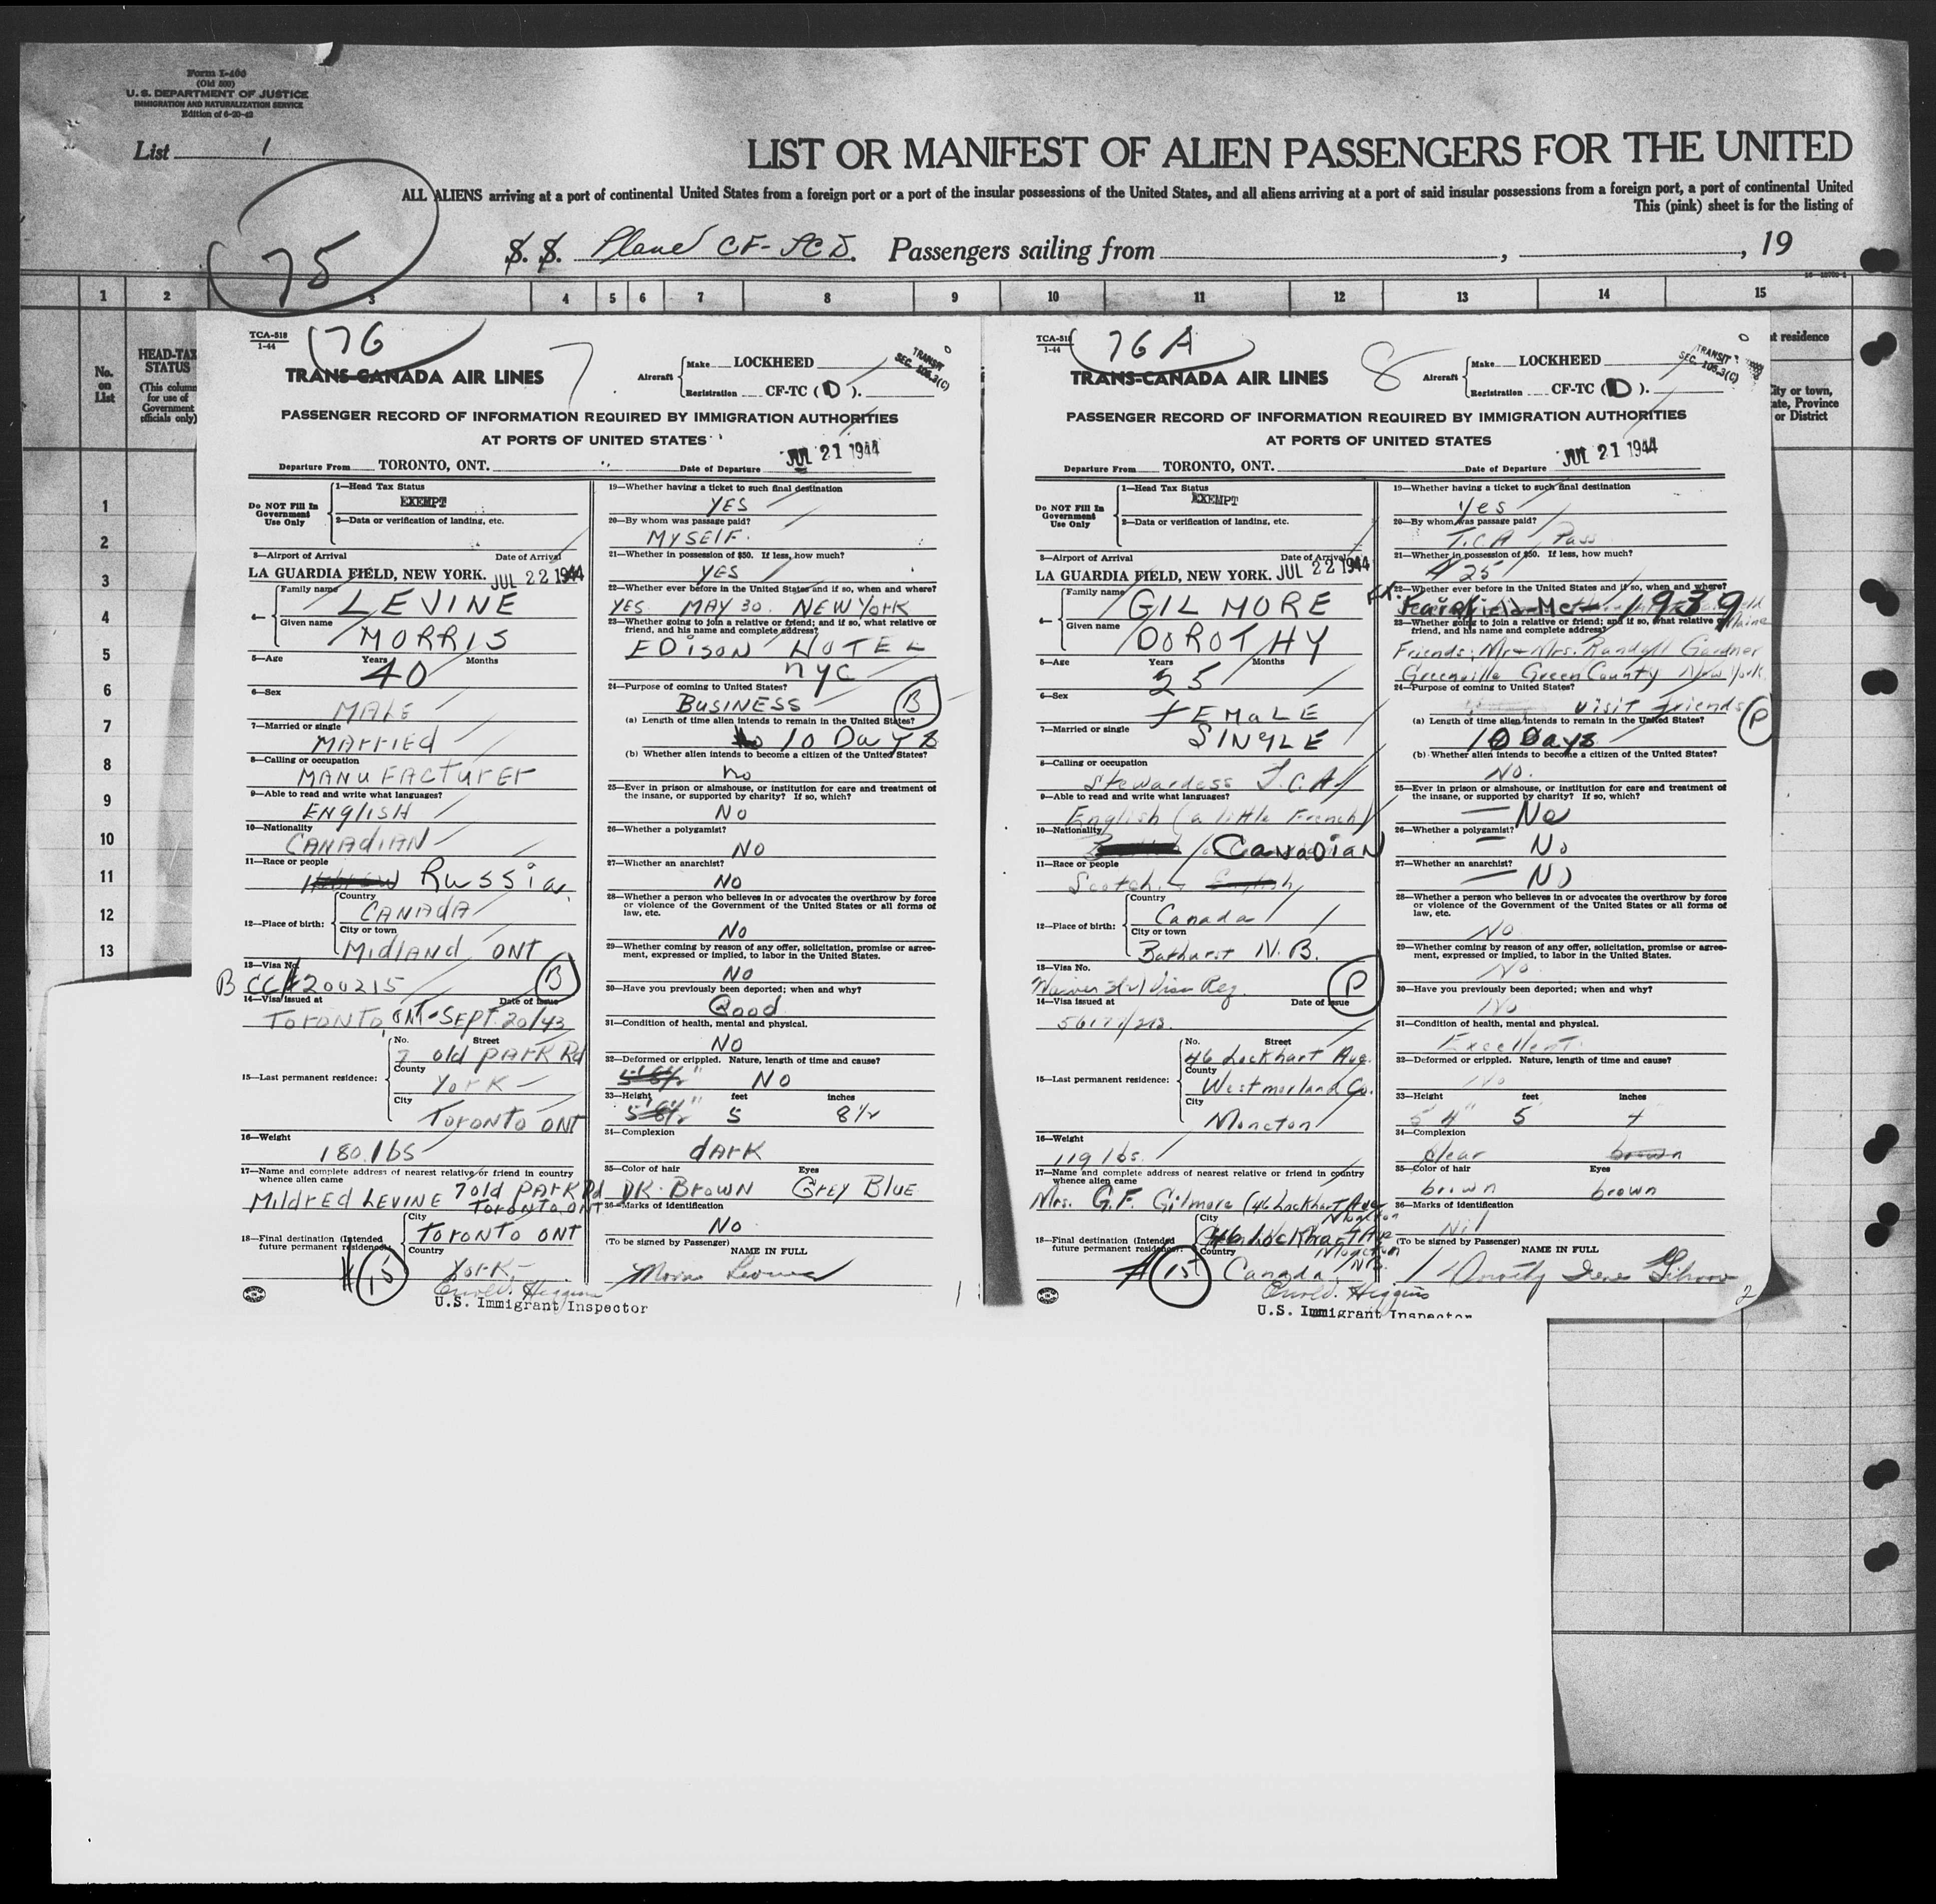 Form I-400
(Old 500)
U. S. DEPARTMENT OF JUSTICE
IMMIGRATION AND NATURALIZATION SERVICE
Edition of 6-20-42
List 1
LIST OR MANIFEST OF ALIEN PASSENGERS FOR THE UNITED
ALL ALIENS arriving at a port of continental United States from a foreign port or a port of the insular possessions of the United States, and all aliens arriving at a port of said insular possessions from a foreign port, a port of continental United
This (pink) sheet is for the listing of
75
S. S. Plane CF-TCD. Passengers sailing from , , 19
1 2 3 4 5 6 7 8 9 10 11 12 13 14 15
No. on List
HEAD-TAX STATUS
(This column for use of Government officials only)
t residence
City or town, State, Province or District
1
2
3
4
5
6
7
8
9
10
11
12
13
TCA-518
1-44
76
7
TRANS-CANADA AIR LINES
Aircraft Make LOCKHEED
Registration CF-TC (D).
TRANSIT
SEC. 105.3(C)
PASSENGER RECORD OF INFORMATION REQUIRED BY IMMIGRATION AUTHORITIES
AT PORTS OF UNITED STATES
Departure From TORONTO, ONT. Date of Departure JUL 21 1944
Do NOT Fill In Government Use Only
1—Head Tax Status
EXEMPT
2—Data or verification of landing, etc.
3—Airport of Arrival Date of Arrival
LA GUARDIA FIELD, NEW YORK. JUL 22 1944
4— Family name LEVINE
Given name MORRIS
5—Age Years 40 Months
6—Sex
MALE
7—Married or single
MARRIED
8—Calling or occupation
MANUFACTURER
9—Able to read and write what languages?
ENGLISH
10—Nationality
CANADIAN
11—Race or people
Hebrew Russia
12—Place of birth: Country
CANADA
City or town
MIDLAND ONT
13—Visa No.
B CC#200215 B
14—Visa issued at Date of Issue
TORONTO, ONT-SEPT. 20/43
15—Last permanent residence: No. Street
7 old PARK Rd
County
YORK
City
TORONTO ONT
16—Weight
180 lbs
17—Name and complete address of nearest relative or friend in country whence alien came
MILDRED LEVINE 7 old PARK Rd
TORONTO ONT
18—Final destination (Intended future permanent residence): City
TORONTO ONT
Country
YORK
(15)
U.S. Immigrant Inspector
19—Whether having a ticket to such final destination
YES
20—By whom was passage paid?
MYSELF.
21—Whether in possession of $50. If less, how much?
YES
22—Whether ever before in the United States and if so, when and where?
YES MAY 30. NEW YORK
23—Whether going to join a relative or friend; and if so, what relative or friend, and his name and complete address?
EDISON HOTEL
NYC
24—Purpose of coming to United States?
BUSINESS B
(a) Length of time alien intends to remain in the United States?
10 Days
(b) Whether alien intends to become a citizen of the United States?
no
25—Ever in prison or almshouse, or institution for care and treatment of the insane, or supported by charity? If so, which?
NO
26—Whether a polygamist?
NO
27—Whether an anarchist?
NO
28—Whether a person who believes in or advocates the overthrow by force or violence of the Government of the United States or all forms of law, etc.
NO
29—Whether coming by reason of any offer, solicitation, promise or agreement, expressed or implied, to labor in the United States.
NO
30—Have you previously been deported; when and why?
Good
31—Condition of health, mental and physical.
NO
32—Deformed or crippled. Nature, length of time and cause?
NO
33—Height feet inches
5 8½
34—Complexion
dark
35—Color of hair Eyes
DK. BROWN GREY BLUE
36—Marks of identification
NO
(To be signed by Passenger) NAME IN FULL
Morris Levine
TCA-518
1-44
76A
8
TRANS-CANADA AIR LINES
Aircraft Make LOCKHEED
Registration CF-TC (D).
TRANSIT
SEC. 105.3(C)
PASSENGER RECORD OF INFORMATION REQUIRED BY IMMIGRATION AUTHORITIES
AT PORTS OF UNITED STATES
Departure From TORONTO, ONT. Date of Departure JUL 21 1944
Do NOT Fill In Government Use Only
1—Head Tax Status
EXEMPT
2—Data or verification of landing, etc.
3—Airport of Arrival Date of Arrival
LA GUARDIA FIELD, NEW YORK. JUL 22 1944
4— Family name GILMORE
Given name DOROTHY
5—Age Years 25 Months
6—Sex
FEMALE
7—Married or single
SINGLE
8—Calling or occupation
Stewardess T.C.A.
9—Able to read and write what languages?
English (a little French)
10—Nationality
CANADIAN
11—Race or people
Scotch English
12—Place of birth: Country
Canada
City or town
Bathurst N.B.
13—Visa No.
Waiver P
14—Visa issued at Date of Issue
15—Last permanent residence: No. Street
46 Lockhart Ave.
County
Westmorland Co.
City
Moncton
16—Weight
119 lbs.
17—Name and complete address of nearest relative or friend in country whence alien came
Mrs. G.F. Gilmore (46 Lockhart Ave
Moncton
18—Final destination (Intended future permanent residence): City
46 Lockhart Ave
Moncton
N.B.
Country
Canada
(15)
U.S. Immigrant Inspector
19—Whether having a ticket to such final destination
Yes
20—By whom was passage paid?
T.C.A. Pass
21—Whether in possession of $50. If less, how much?
$25
22—Whether ever before in the United States and if so, when and where?
Ft. Fairfield Me 1939
23—Whether going to join a relative or friend; and if so, what relative or friend, and his name and complete address?
Friends: Mr & Mrs. Randall Gardner
Greenville Green County New York.
24—Purpose of coming to United States?
Visit friends P
(a) Length of time alien intends to remain in the United States?
10 Days
(b) Whether alien intends to become a citizen of the United States?
No.
25—Ever in prison or almshouse, or institution for care and treatment of the insane, or supported by charity? If so, which?
No
26—Whether a polygamist?
No
27—Whether an anarchist?
NO
28—Whether a person who believes in or advocates the overthrow by force or violence of the Government of the United States or all forms of law, etc.
NO
29—Whether coming by reason of any offer, solicitation, promise or agreement, expressed or implied, to labor in the United States.
No
30—Have you previously been deported; when and why?
No
31—Condition of health, mental and physical.
Excellent
32—Deformed or crippled. Nature, length of time and cause?
No
33—Height feet inches
5'4" 5 4
34—Complexion
clear brown
35—Color of hair Eyes
brown brown
36—Marks of identification
Nil
(To be signed by Passenger) NAME IN FULL
Dorothy Irene Gilmore
2